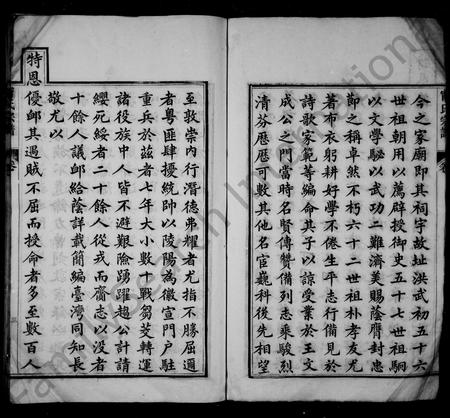 今之家廟即其祠宇故址洪武初五十六
世祖朝用以薦辟授御史五十七世祖駉
以文學駱以武功二難濟美賜蔭膺封忠
節之稱卓然不朽六十二世祖朴孝友尤
著布衣躬耕好學不倦生平志行備見於
詩歌家範等編命其子以諒受業於王文
成公之門當時名賢傳贊備列志乘駿烈
清芬歷歷可數其他名宦巍科後先相望
至敦崇內行潛德弗耀者尤指不勝屈適
者粵匪肆擾統帥以陵陽為徽宣門戶駐
重兵於茲者七年大小數十戰芻茭轉運
諸役族中人皆不避艱險踴躍趨公計請
纓死綏者二十餘人從戎而齎志以沒者
十餘人議卹給蔭詳載簡編臺灣同知長
敬尤以
特恩優卹其遇賊不屈而授命者多至數百人